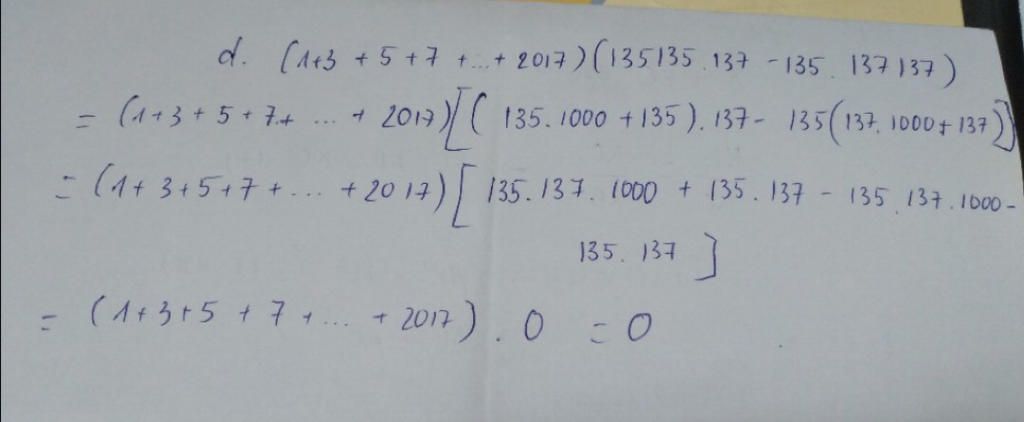 d. (1+3 + 5 + 7 + ... + 2017)(135135.137 - 135. 137137)
= (1+3+5+7+ ... + 2017)[(135.1000 + 135).137 - 135(137.1000+137)]
= (1+3+5+7+... +2017)[135.137.1000 + 135.137 - 135.137.1000 -
135.137]
= (1+3+5 + 7 + ... + 2017).0 = 0